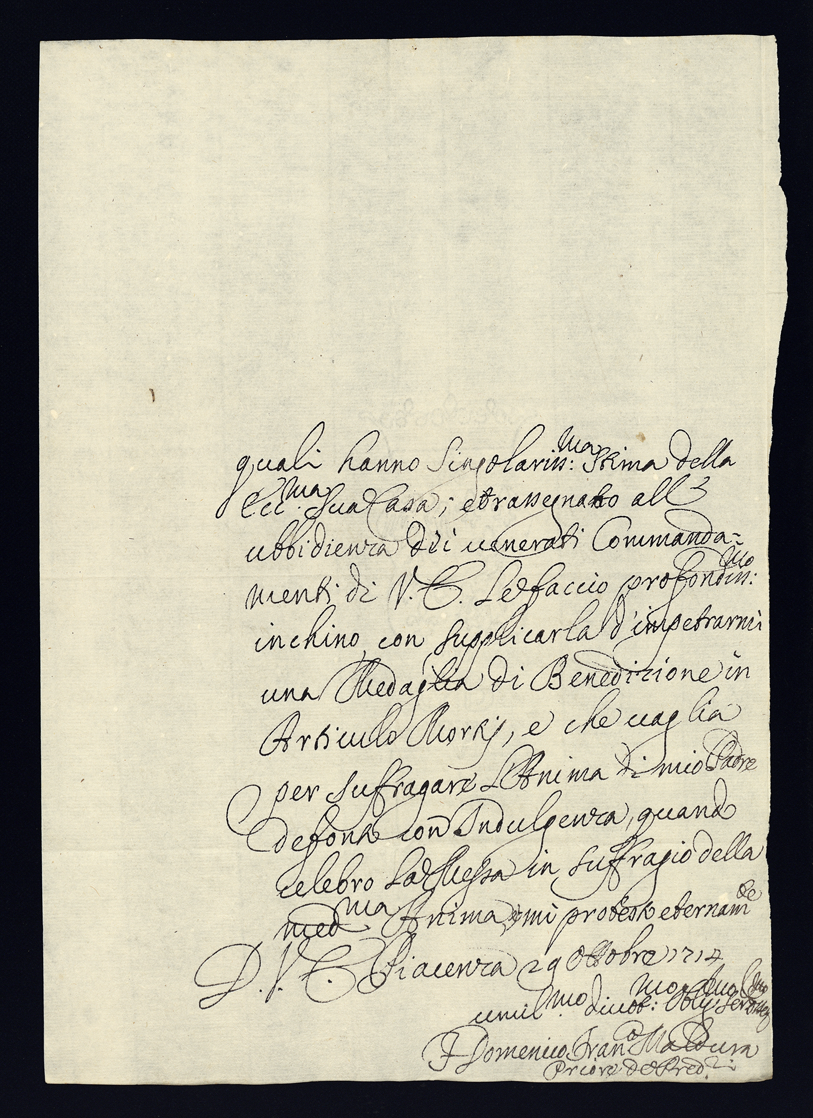 quali hanno Singolariss:ma Stima della
Ecc:ma Sua Casa; e trassegnato all'
ubbidienza dei venerati Commanda=
menti di V. E. Le faccio profondiss:mo
inchino, con supplicarla d'impetrarmi
una Medaglia di Benedizione in
Articulo Mortis, e che vaglia
per suffragare L'Anima di mio Padre
defonto con Indulgenza, quando
celebro La Messa in suffragio della
med:ma Anima, e mi protesto eternamte
D. V. E. Piacenza 29 Ottobre 1714
umil:mo divot:mo Oblig:mo
F Domenico Fran:co Maldura
Priore de Pred:ri